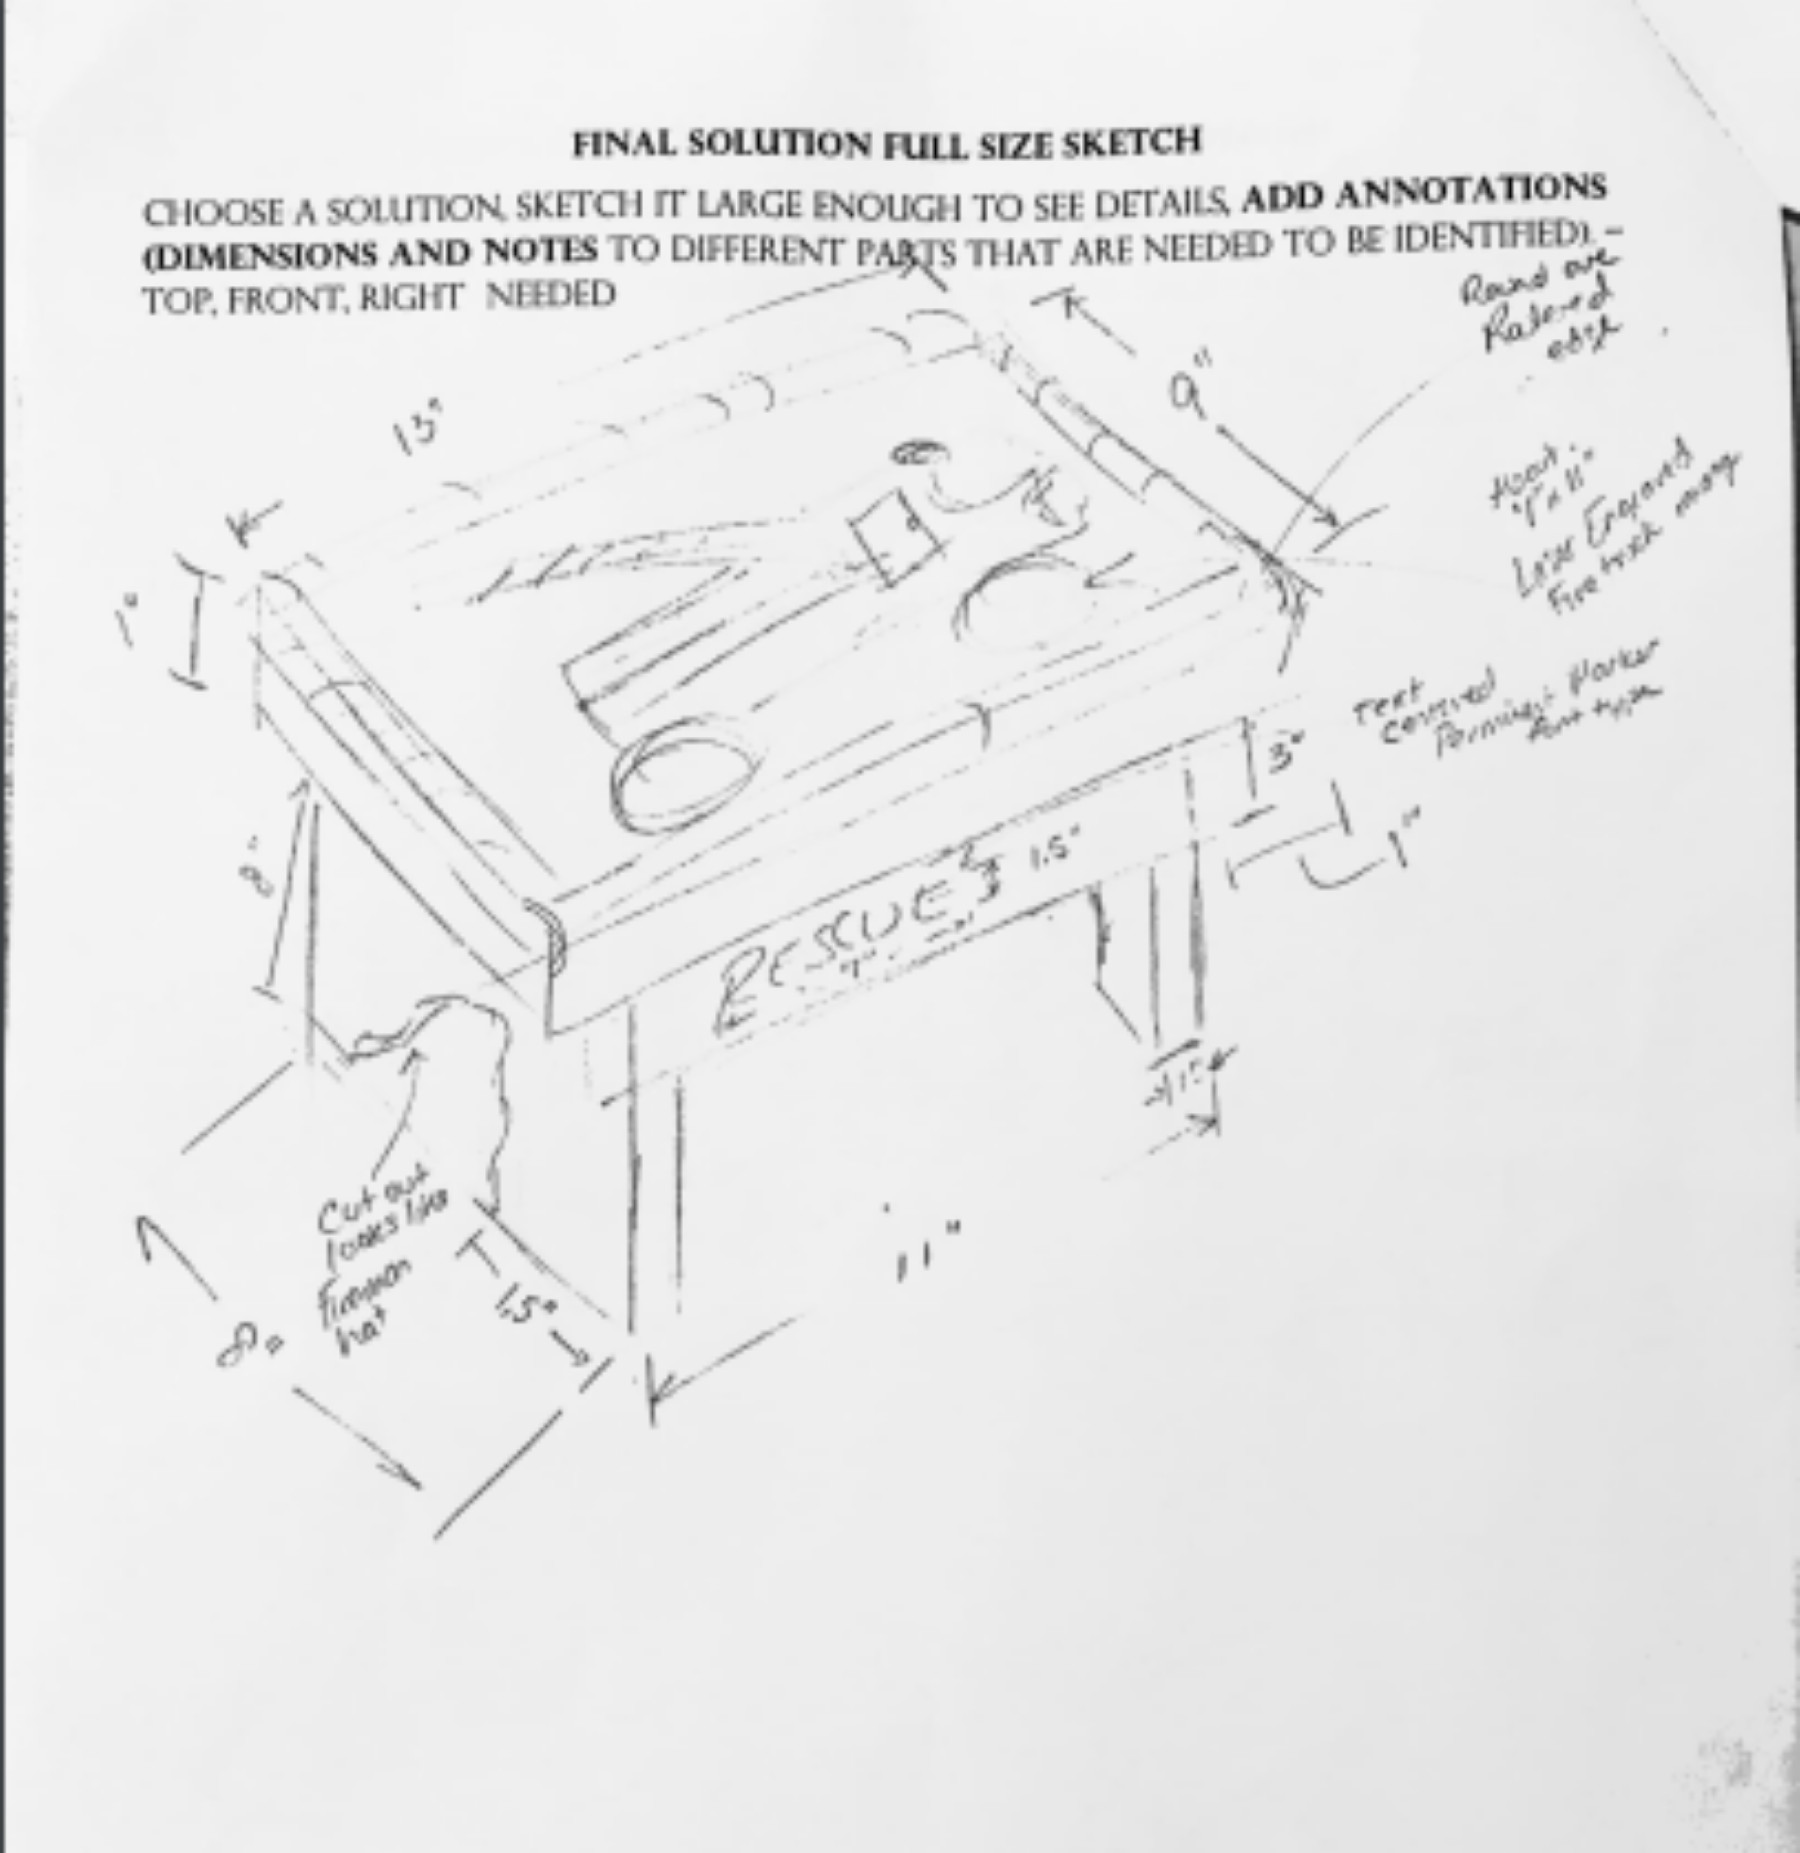 FINAL SOLUTION FULL SIZE SKETCH
CHOOSE A SOLUTION, SKETCH IT LARGE ENOUGH TO SEE DETAILS, ADD ANNOTATIONS
(DIMENSIONS AND NOTES TO DIFFERENT PARTS THAT ARE NEEDED TO BE IDENTIFIED). –
TOP, FRONT, RIGHT NEEDED
Round over
edge
9"
13"
About
Laser Engraved
Fire truck
1"
Text
centered
Marker
3"
1"
8"
RESCUE 3 1.5"
Cut out
looks like
Fireman
hat
11"
1.5"
8"